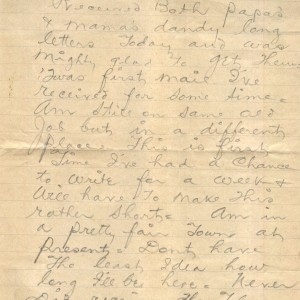 Received Both Papa's
& Mama's dandy long
letters Today and was
Mighty glad To get Them
'Twas first Mail I've
received for some time -
Am still on same old
Job but in a different
place. This is first
Time I've had a Chance
to write for a week &
Will have To Make This
rather Short. Am in
a pretty fair Town at
present. Don't have
The least Idea how
long I'll be here. Never